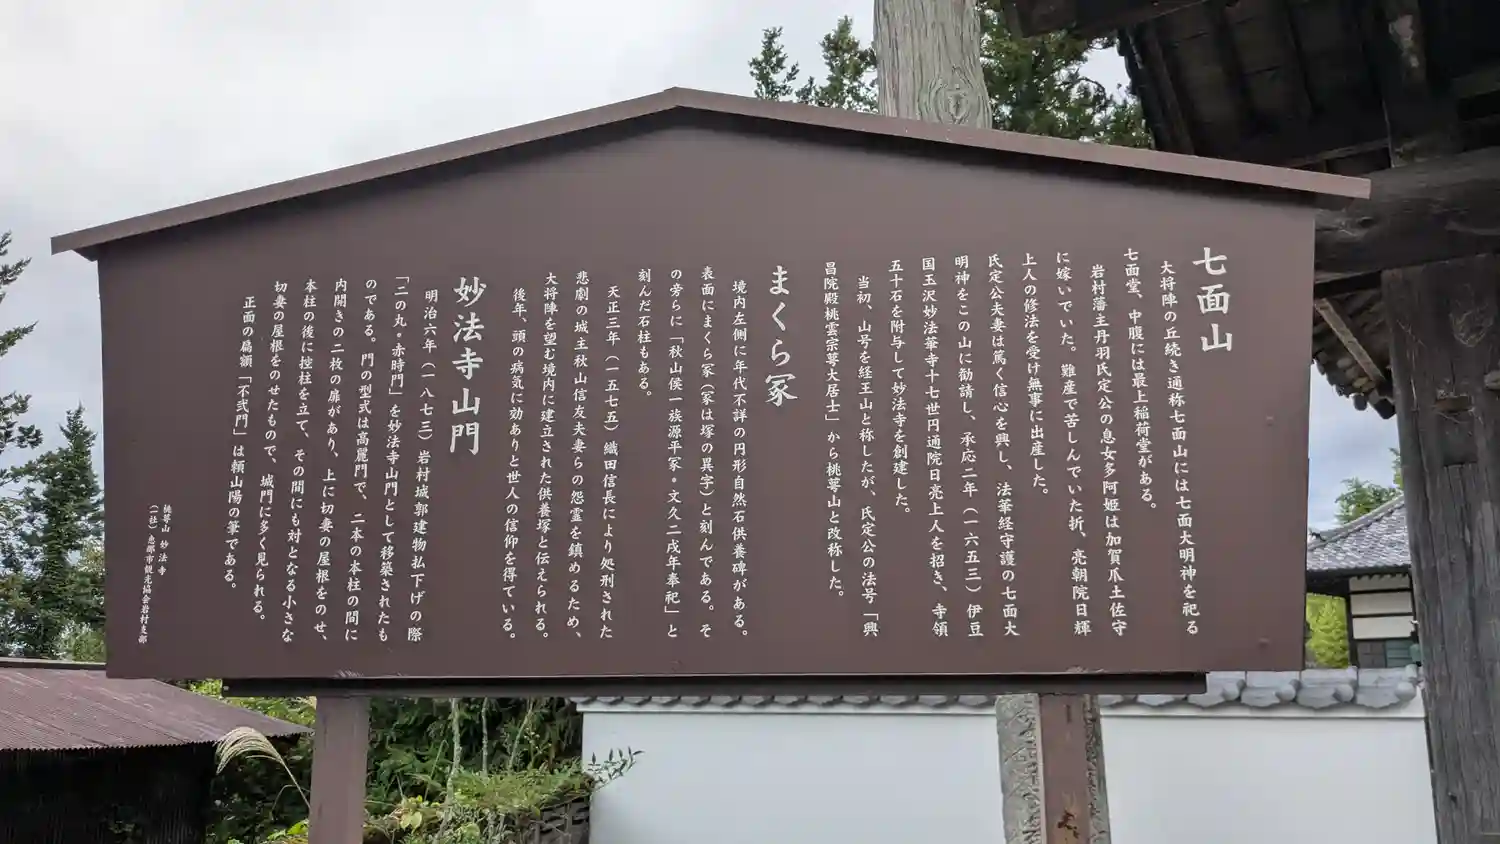 七面山
大将陣の丘続き通称七面山には七面大明神を祀る
七面堂、中腹には最上稲荷堂がある。
岩村藩主丹羽氏定公の息女多阿姫は加賀爪土佐守
に嫁いでいた。難産で苦しんでいた折、亮朝院日輝
上人の修法を受け無事に出産した。
氏定公夫妻は篤く信心を興し、法華経守護の七面大
明神をこの山に勧請し、承応二年（一六五三）伊豆
国玉沢妙法華寺十七世円通院日亮上人を招き、寺領
五十石を附与して妙法寺を創建した。
当初、山号を経王山と称したが、氏定公の法号「興
昌院殿桃雲宗萼大居士」から桃萼山と改称した。
まくら冢
境内左側に年代不詳の円形自然石供養碑がある。
表面にまくら冢（冢は塚の異字）と刻んである。そ
の旁らに「秋山侯一族源平冢。文久二戌年奉祀」と
刻んだ石柱もある。
天正三年（一五七五）織田信長により処刑された
悲劇の城主秋山信友夫妻らの怨霊を鎮めるため、
大将陣を望む境内に建立された供養塚と伝えられる。
後年、頭の病気に効ありと世人の信仰を得ている。
妙法寺山門
明治六年（一八七三）岩村城郭建物払下げの際
「二の丸・赤時門」を妙法寺山門として移築されたも
のである。門の型式は高麗門で、二本の本柱の間に
内開きの二枚の扉があり、上に切妻の屋根をのせ、
本柱の後に控柱を立て、その間にも対となる小さな
切妻の屋根をのせたもので、城門に多く見られる。
正面の扁額「不弐門」は頼山陽の筆である。
桃萼山 妙法寺
（一社）恵那市観光協会岩村支部